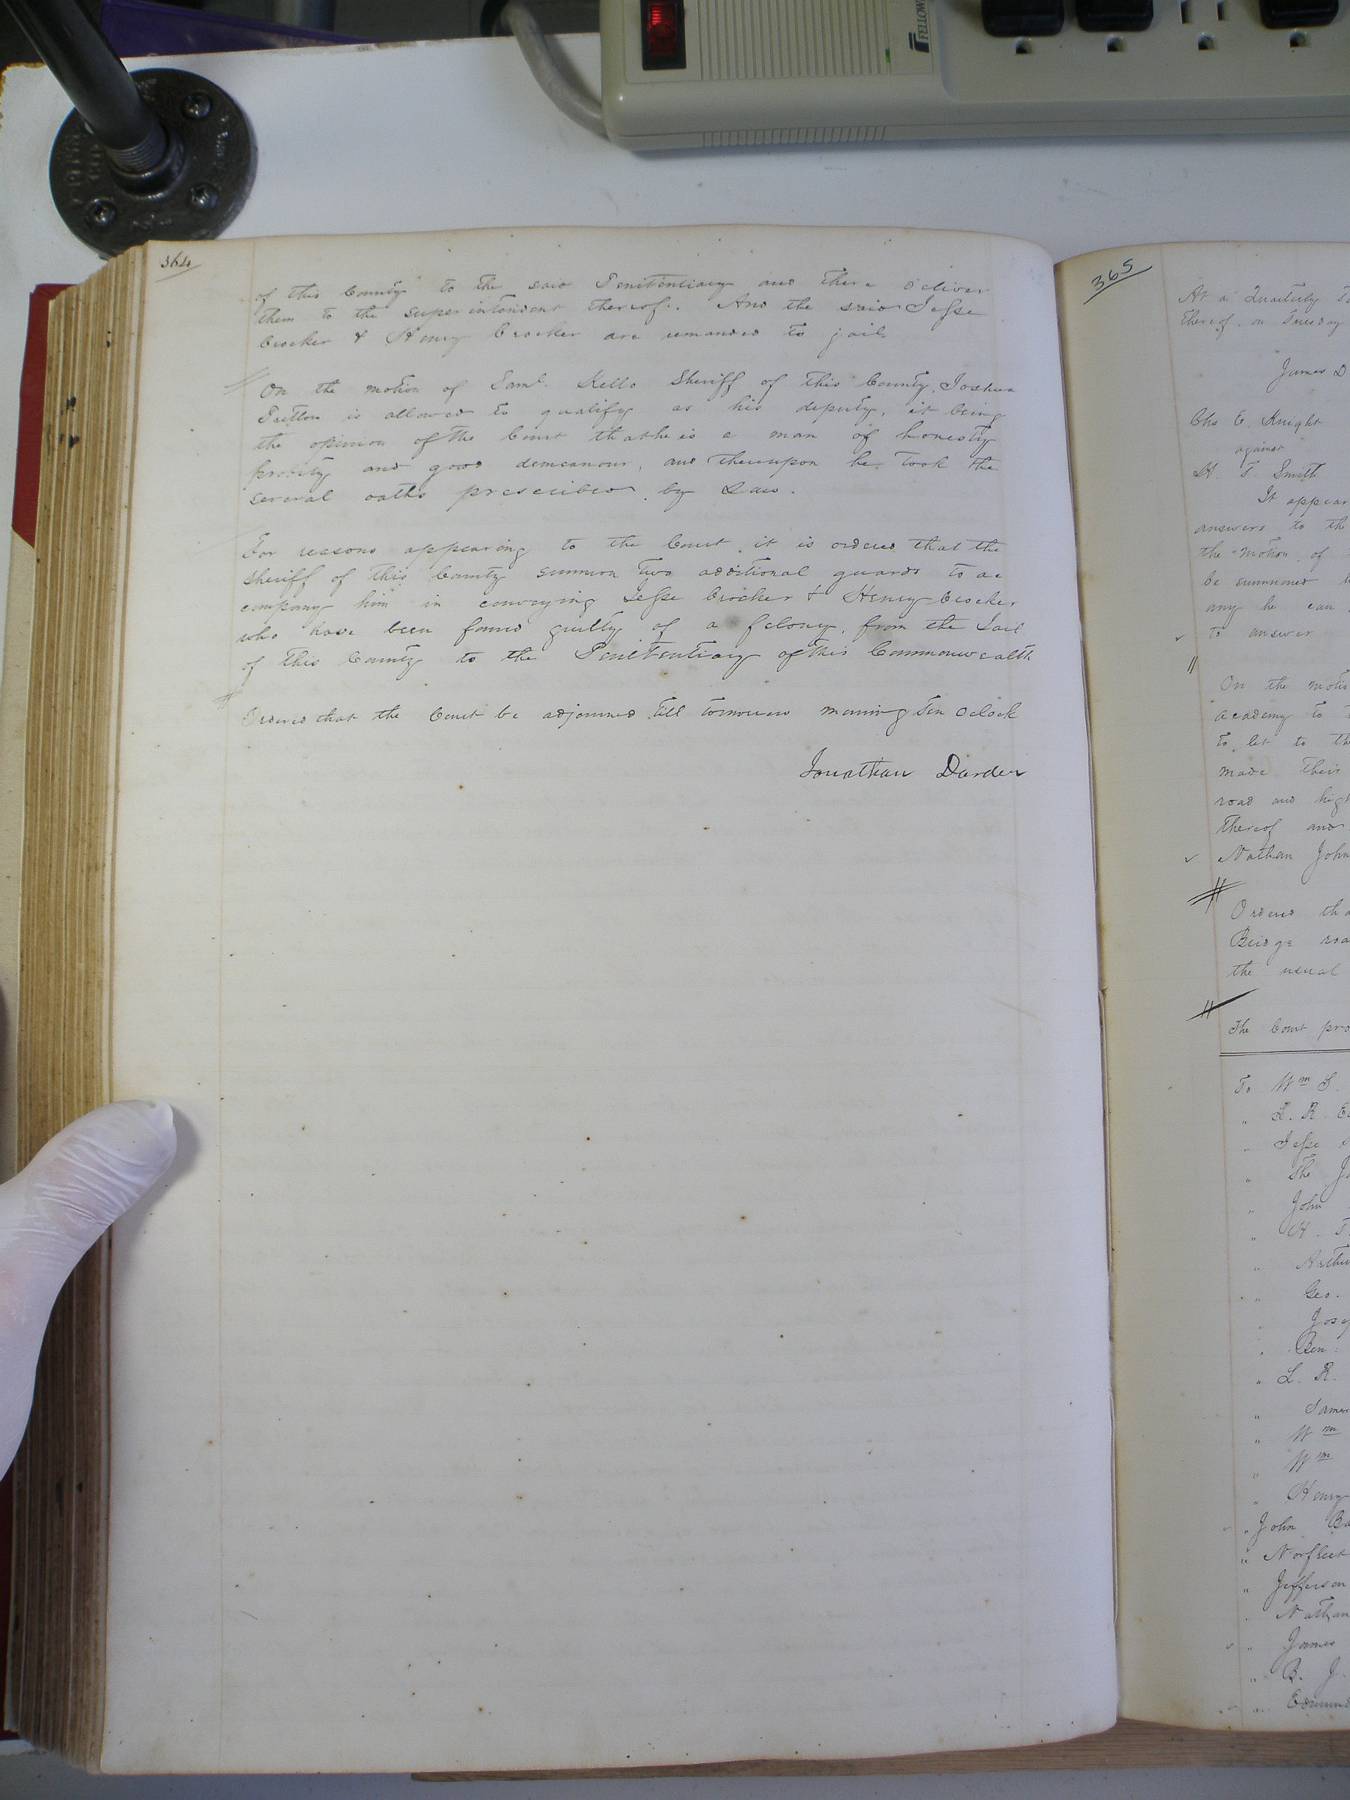 FELLOW
364
of this County to the said Penitentiary and there deliver
them to the superintendent thereof. And the said Jesse
Crocker & Henry Crocker are remanded to jail.
On the motion of Saml. Kello Sheriff of this County, Joshua
Pretlow is allowed to qualify as his deputy, it being
the opinion of the Court that he is a man of honesty
probity and good demeanour, and thereupon he took the
several oaths prescribed by Law.
For reasons appearing to the Court it is ordered that the
Sheriff of this County summon two additional guards to ac
company him in conveying Jesse Crocker & Henry Crocker
who have been found guilty of a felony, from the Jail
of this County to the Penitentiary of this Commonwealth
Ordered that the Court be adjourned till tomorrow morning ten oclock
Jonathan Darden
365
At a Quarterly
thereof on Tuesday
James D
Chs E. Knight
against
H. T. Smith
It appear
answers to the
the motion of
be summoned
any he can
to answer
On the motio
academy to
to let to th
made their
road and high
thereof and
Nathan John
Ordered tha
Bridge roa
the usual
The Court pro
To Wm S.
" L. R. E
" Jesse
" The J
" John
" H. T.
" Arthu
" Geo.
" Jose
" Ben
" L. R.
" James
" Wm
" Wm
" Henry
" John Ba
" Norfleet
" Jefferson
" Nathan
" James
" B. J.
" Edmund